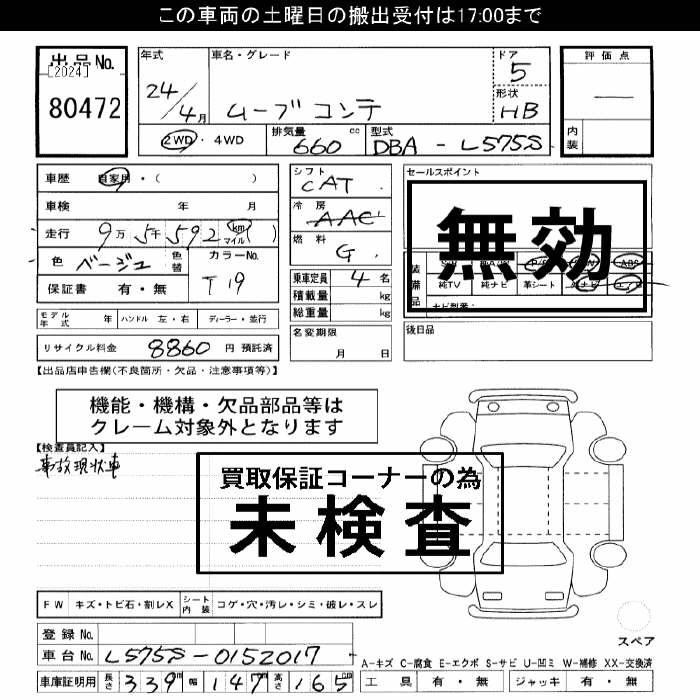 この車両の土曜日の搬出受付は17:00まで
出品No.
[2024]
80472
年式
24/4月
車名・グレード
ムーブコンテ
ドア
5
形状
HB
2WD・4WD
排気量
660 cc
型式
DBA - L575S
評価点
―
内装
車歴 自家用・( )
車検 年 月
走行 9万5千592 km マイル ( )
色 ベージュ 色替
カラーNo.
T19
保証書 有・無
モデル年式 年 ハンドル 左・右 ディーラー・並行
リサイクル料金 8860 円 預託済
シフト
CAT
冷房
AAC
燃料
G
乗車定員 4 名
積載量 kg
総重量 kg
名変期限
月 日
セールスポイント
無効
装備品
P/S P/W ABS
純TV 純ナビ 革シート 社外ナビ エアB
ナビ型番:
後日品
【出品店申告欄(不良箇所・欠品・注意事項等)】
機能・機構・欠品部品等は
クレーム対象外となります
【検査員記入】
事故現状車
買取保証コーナーの為
未検査
FW キズ・トビ石・割レX シート内装 コゲ・穴・汚レ・シミ・破レ・スレ
登録No.
車台No. L575S-0152017
車庫証明用 長さ 339 cm 幅 147 cm 高さ 165 cm
スペア
A-キズ C-腐食 E-エクボ S-サビ U-凹ミ W-補修 XX-交換済
工具 有・無 ジャッキ 有・無